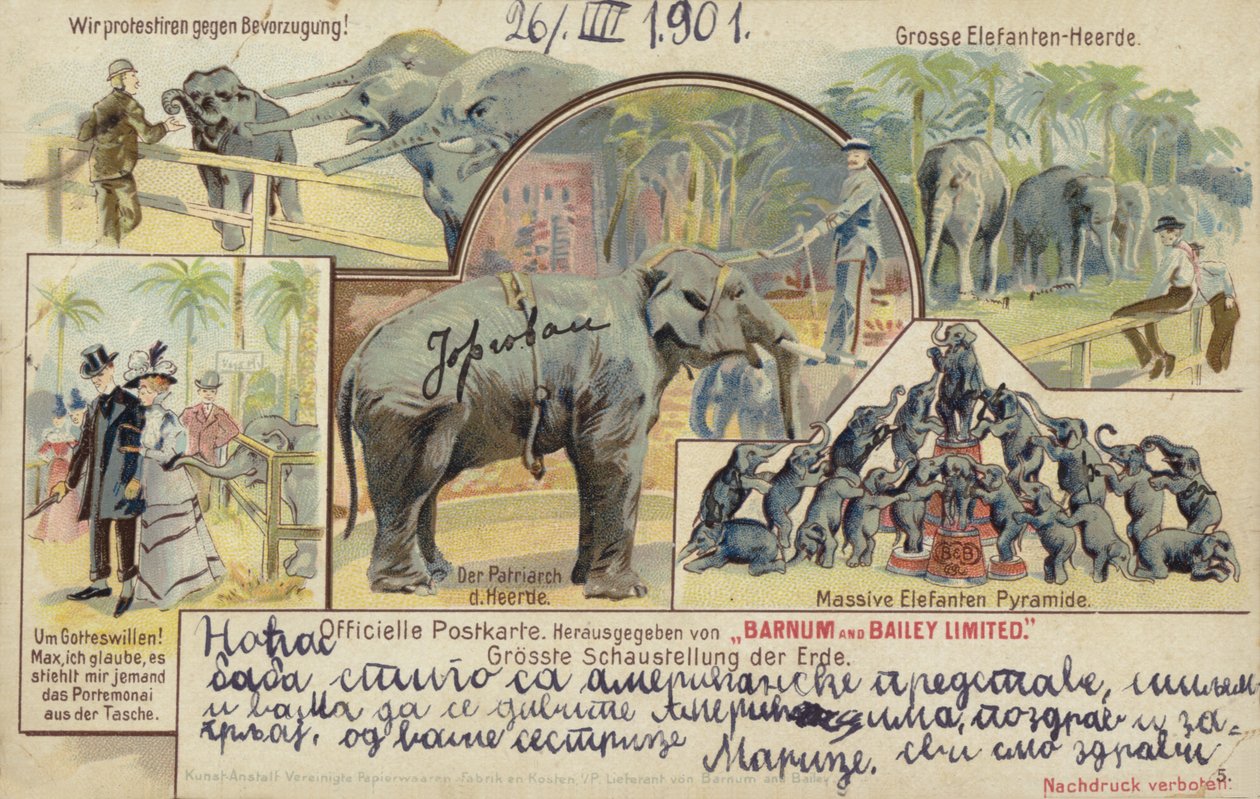 26/. VIII 1901.
Wir protestiren gegen Bevorzugung!
Grosse Elefanten-Heerde.
Der Patriarch
d. Heerde.
B&B
Massive Elefanten Pyramide.
Um Gotteswillen!
Max, ich glaube, es
stiehlt mir jemand
das Portemonai
aus der Tasche.
Officielle Postkarte. Herausgegeben von „BARNUM AND BAILEY LIMITED."
Grösste Schaustellung der Erde.
Ноћас
баба стиго са американске представе, шиљем
и вама да се дивите Америк има, поздрав и за-
грљај, од ваше сестрице
Марице. сви смо здрави
Kunst-Anstalt Vereinigte Papierwaaren-Fabriken Kosten, i/P. Lieferant von Barnum and Bailey
5.
Nachdruck verboten.